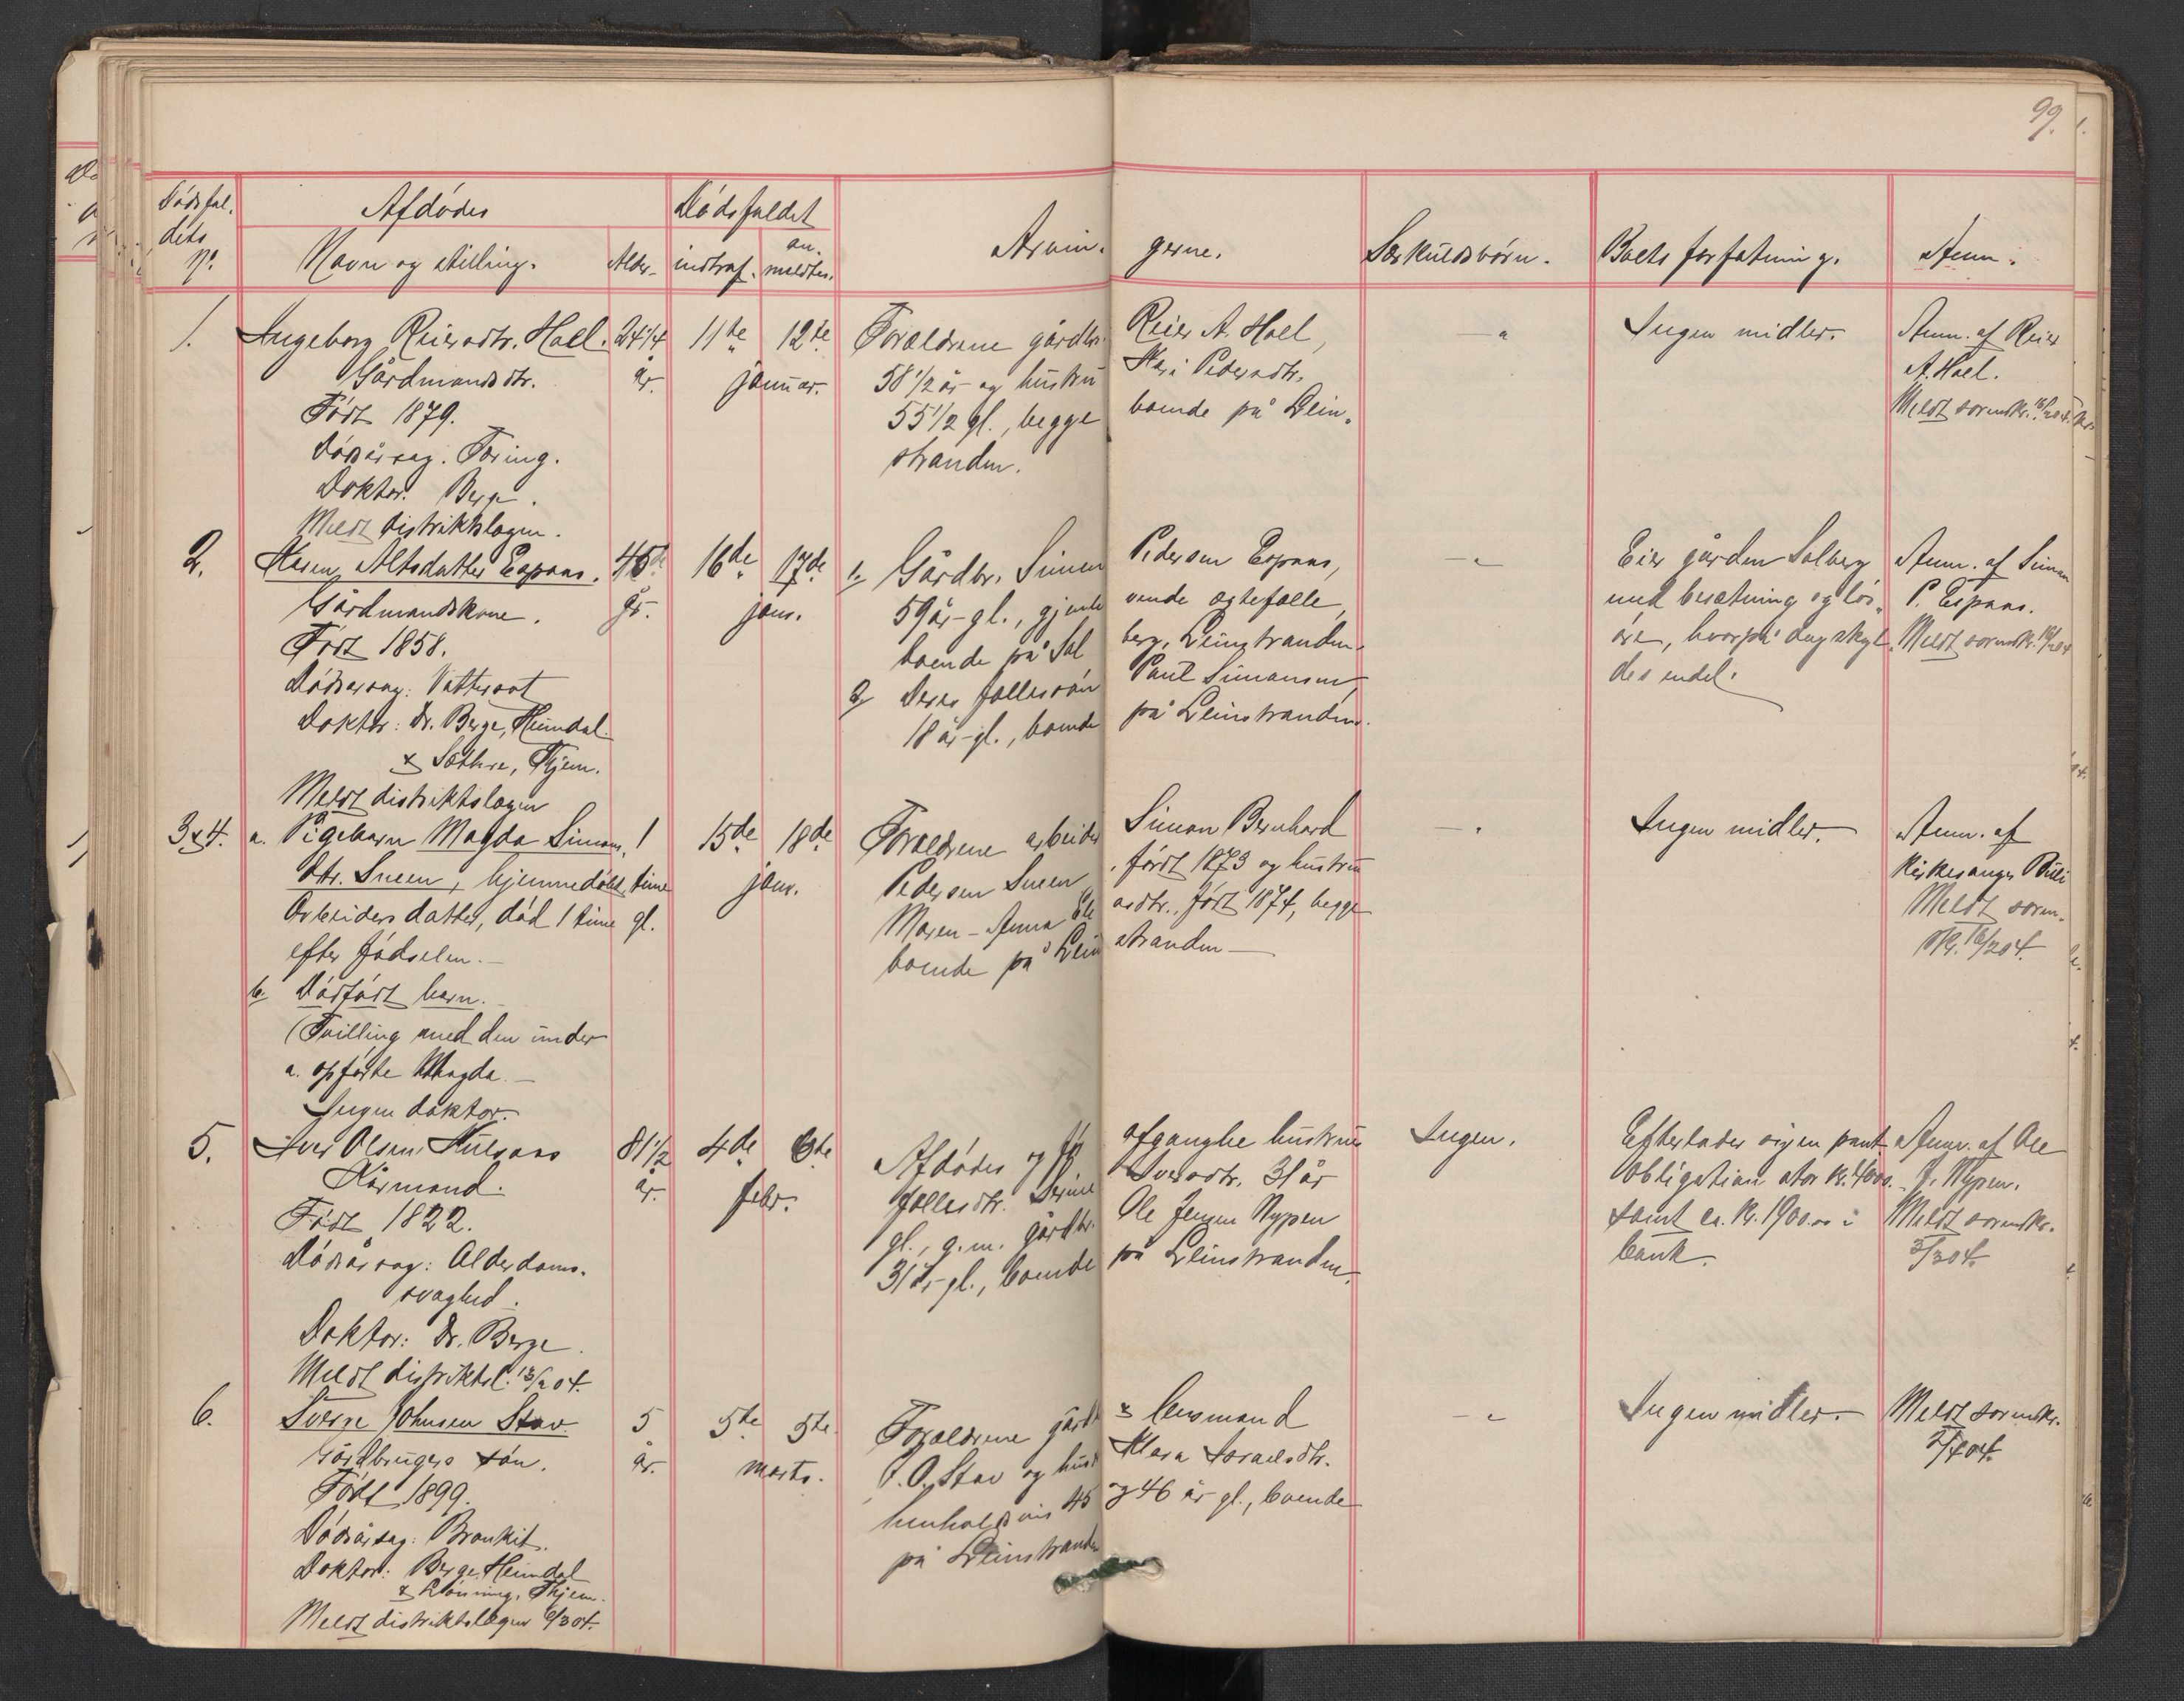 99.
Dødsfal-
dets
No.
Afdødes
Navn og stilling.
Alder.
Dødsfaldet
indtraf.
an-
meldtes.
Arvin-
gerne.
Særkuldsbørn.
Boets forfatning.
Anm.
1.
Ingeborg Reiersdtr. Hoel.
Gårdmandsdtr.
Født 1879.
Dødsårsag. Tæring.
Doktor. Berge.
Meldt distriktslægen.
24 1/4
år.
11te
12te
januar.
Forældrene gårdbr. Reier A. Hoel,
58 1/2 år og hustru Mari Pedersdtr.
55 1/2 gl., begge boende på Lein-
stranden.
"
Ingen midler.
Anm. af Reier
A. Hoel.
Meldt sorenskr. 16/2 04.
2.
Karen Altsdatter Espaas.
Gårdmandskone.
Født 1858.
Dødsårsag: Vattersot
Doktor: Dr. Berge, Heimdal
& Sæthre, Thjem.
Meldt distriktslægen
45
år.
16de
17de
jan.
1. Gårdbr. Simon Pedersen Espaas,
59 år gl., gjenlevende ægtefælle,
boende på Solberg, Leinstranden.
2. Deres fællessøn Paul Simonsen,
18 år gl., boende på Leinstranden.
"
Eier gården Solberg
med besætning og løs-
øre, hvorpå dog skyl-
des endel.
Anm. af Simon
P. Espaas.
Meldt sorenskr. 16/2 04
3 & 4.
a. Pigebarn Magda Simons-
dtr. Sneen, hjemmedøbt
Arbeiders datter, død 1 time
efter fødselen.
b. Dødfødt barn.
(Tvilling med den under
a. opførte Magda.
Ingen doktor.
1
time
gl.
15de
18de
jan.
Forældrene arbeider Simon Bernhard
Pedersen Sneen, født 1873 og hustru
Maren-Anna Eliasdtr., født 1874, begge
boende på Leinstranden
"
Ingen midler.
Anm. af
kirkesanger
Meldt soren-
skr. 16/2 04.
5.
Iver Olsen Kulsaas
Kårmand.
Født 1822.
Dødsårsag: Alderdoms-
svaghed.
Doktor: Dr. Berge.
Meldt distriktsl. 13/2 04.
81 1/2
år.
4de
6te
febr.
Afdødes og før afgangne hustrues
fællesdtr. Serine Iversdtr. 31 år
gl., g.m. gårdbr. Ole Jensen Nypen
31 år gl., boende på Leinstranden.
Ingen.
Efterlader sig en pant-
obligation stor kr. 4000.
samt ca. kr. 1900.00 i
bank.
Anm. af Ole
J. Nypen.
Meldt sorenskr.
3/3 04.
6.
Sverge Johnsen Stav
Gårdbrugers søn.
Født 1899.
Dødsårsag: Bronkit.
Doktor: Berge, Heimdal
& Lönning, Thjem.
Meldt distriktslægen 6/3 04.
5
år.
5te
5te
marts.
Forældrene gårdbr. & lensmand
J. O. Stav og hustru Klara Israelsdtr.
henholdsvis 45 og 46 år gl., boende
på Leinstranden
"
Ingen midler.
Meldt sorenskr.
2/4 04.